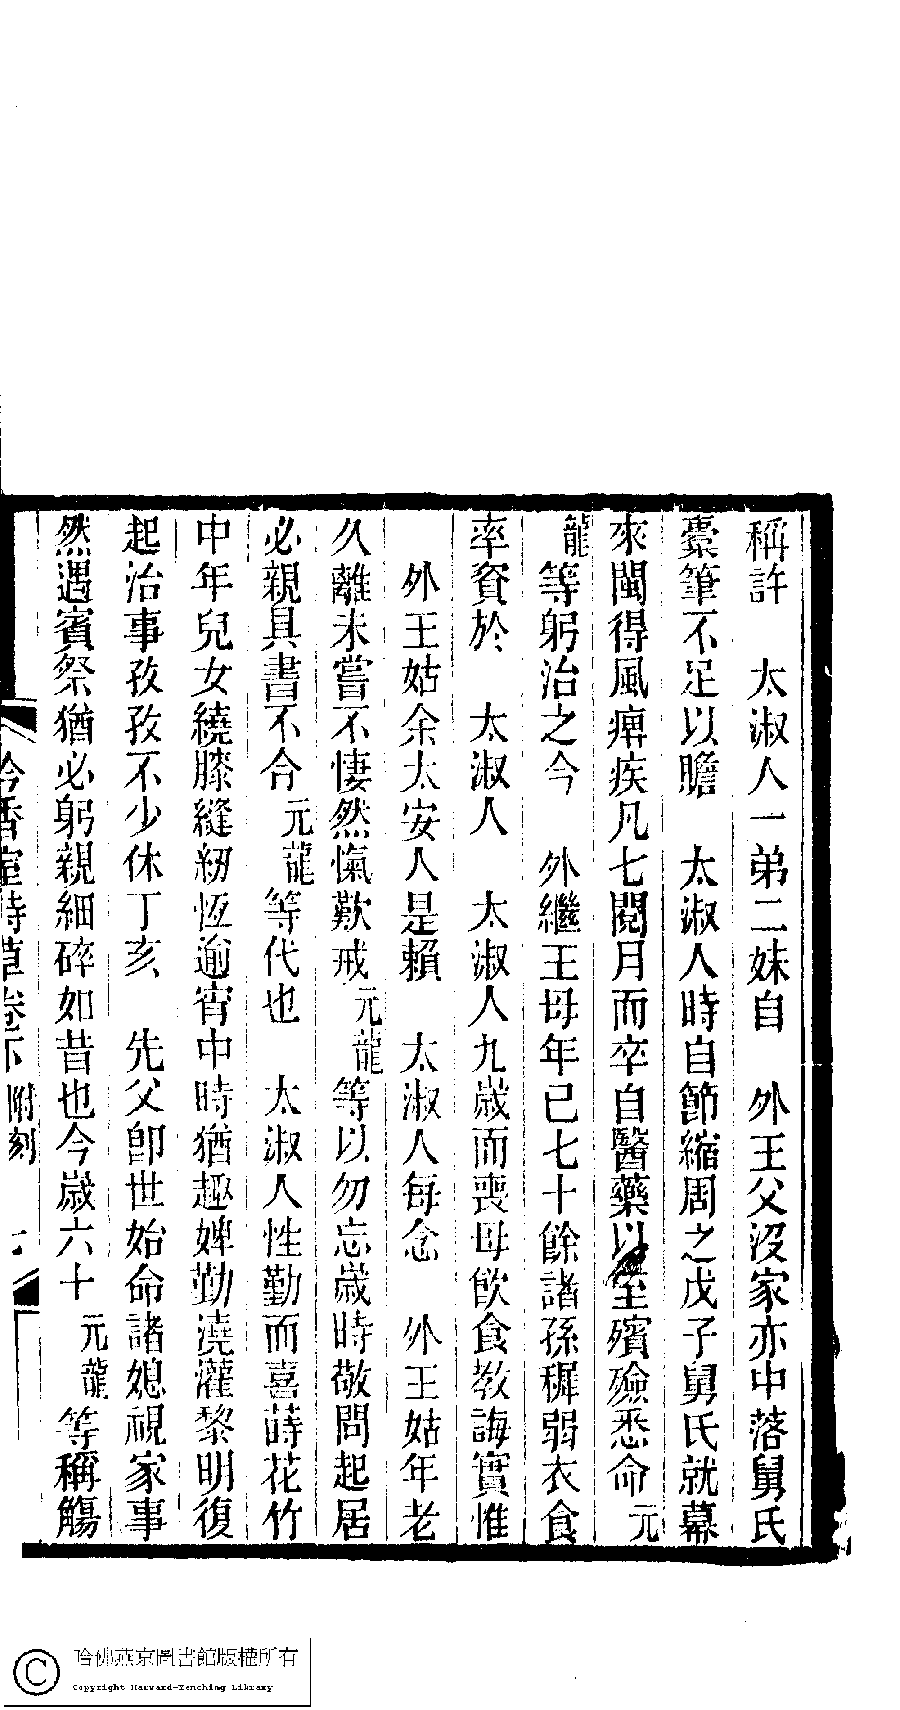 稱許　太淑人一弟二妹自　外王父沒家亦中落舅氏
橐筆不足以贍　太淑人時自節縮周之戊子舅氏就幕
來閩得風痺疾凡七閱月而卒自醫藥以至殯殮悉命元
龍等躬治之今　外繼王母年已七十餘諸孫穉弱衣食
率資於　太淑人　太淑人九歲而喪母飲食教誨實惟
外王姑余太安人是賴　太淑人每念　外王姑年老
久離未嘗不悽然愾歎戒元龍等以勿忘歲時敬問起居
必親具書不令元龍等代也　太淑人性勤而喜蒔花竹
中年兒女繞膝縫紉恆逾宵中時猶趣婢勤澆灌黎明復
起治事孜孜不少休丁亥　先父卽世始命諸媳視家事
然遇賓祭猶必躬親細碎如昔也今歲六十　元龍等稱觴
吟香室詩草卷下　附刻
哈佛燕京圖書館版權所有
Copyright Harvard-Yenching Library